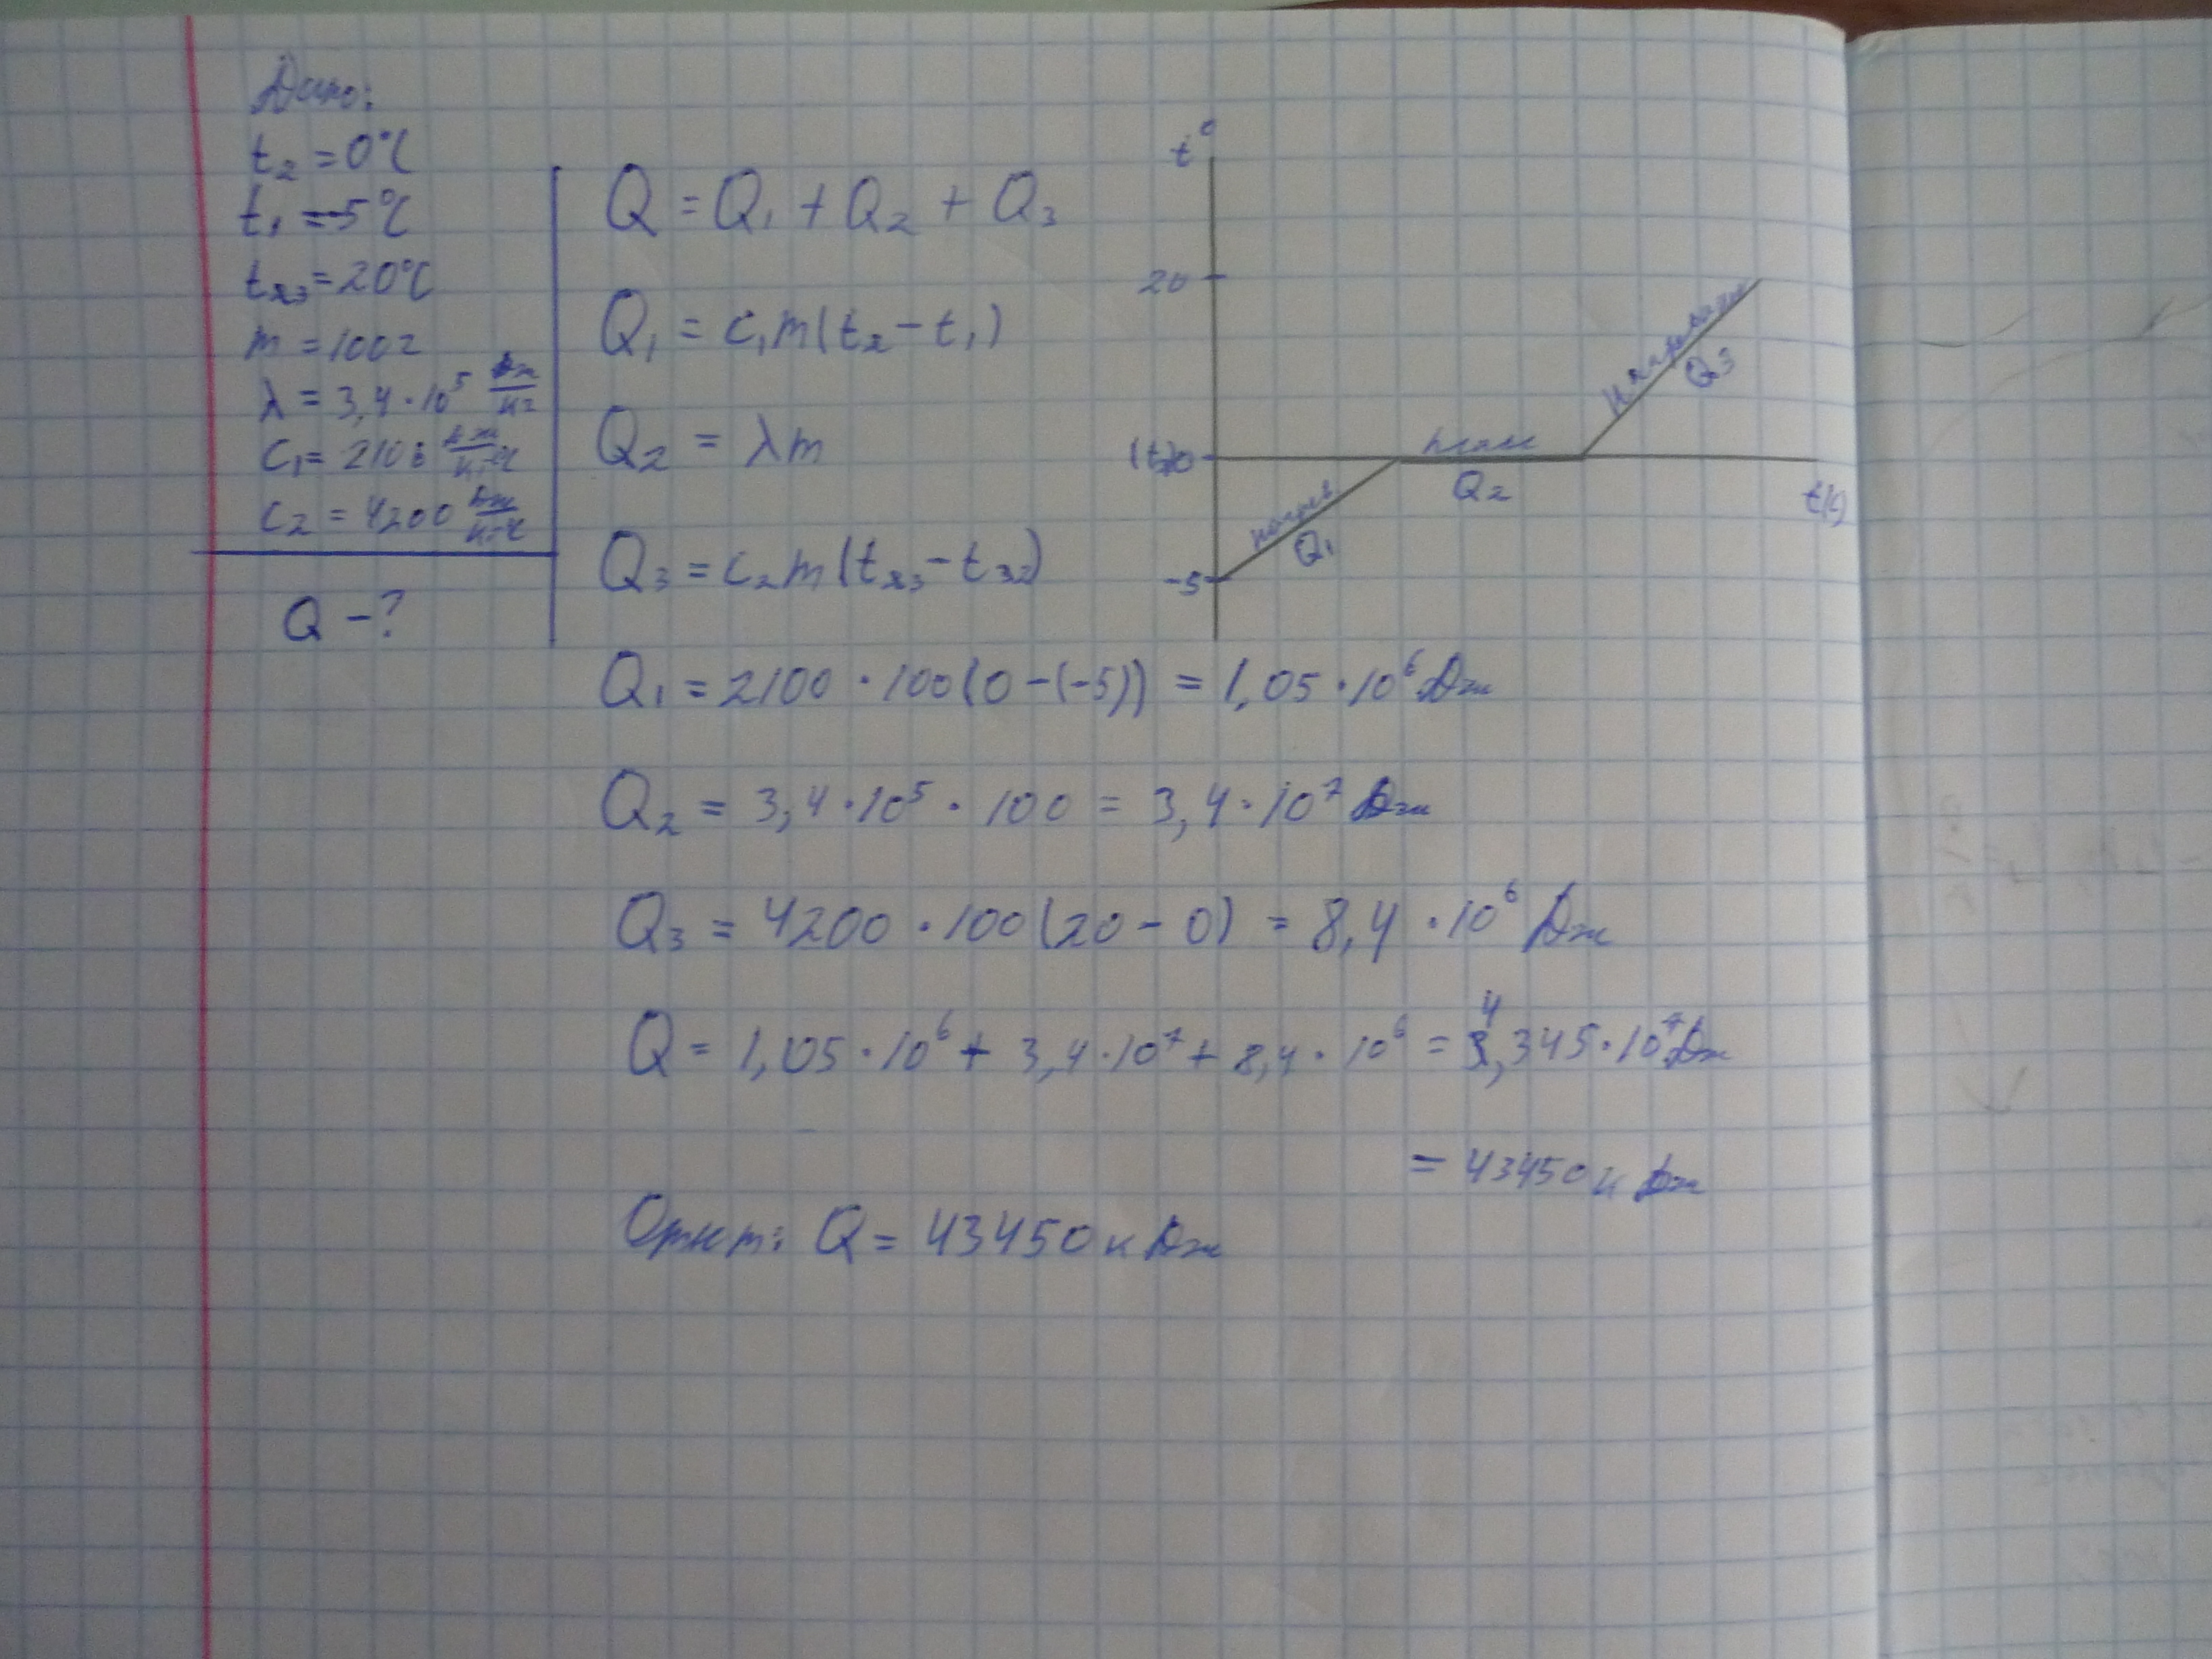 Дано:
t₂ = 0°C
t₁ = -5°C
t₃ = 20°C
m = 100г
λ = 3,4 · 10⁵ Дж/кг
c₁ = 2100 Дж/кг°C
c₂ = 4200 Дж/кг°C
Q – ?
Q = Q₁ + Q₂ + Q₃
Q₁ = c₁m(t₂ – t₁)
Q₂ = λm
Q₃ = c₂m(t₃ – t₂)
t°
20
нагревание
Q₃
(t₂)0
плав
Q₂
t(с)
нагрев
Q₁
-5
Q₁ = 2100 · 100(0 – (-5)) = 1,05 · 10⁶ Дж
Q₂ = 3,4 · 10⁵ · 100 = 3,4 · 10⁷ Дж
Q₃ = 4200 · 100(20 – 0) = 8,4 · 10⁶ Дж
Q = 1,05 · 10⁶ + 3,4 · 10⁷ + 8,4 · 10⁶ = 4,345 · 10⁷ Дж
= 43450 кДж
Ответ: Q = 43450 кДж